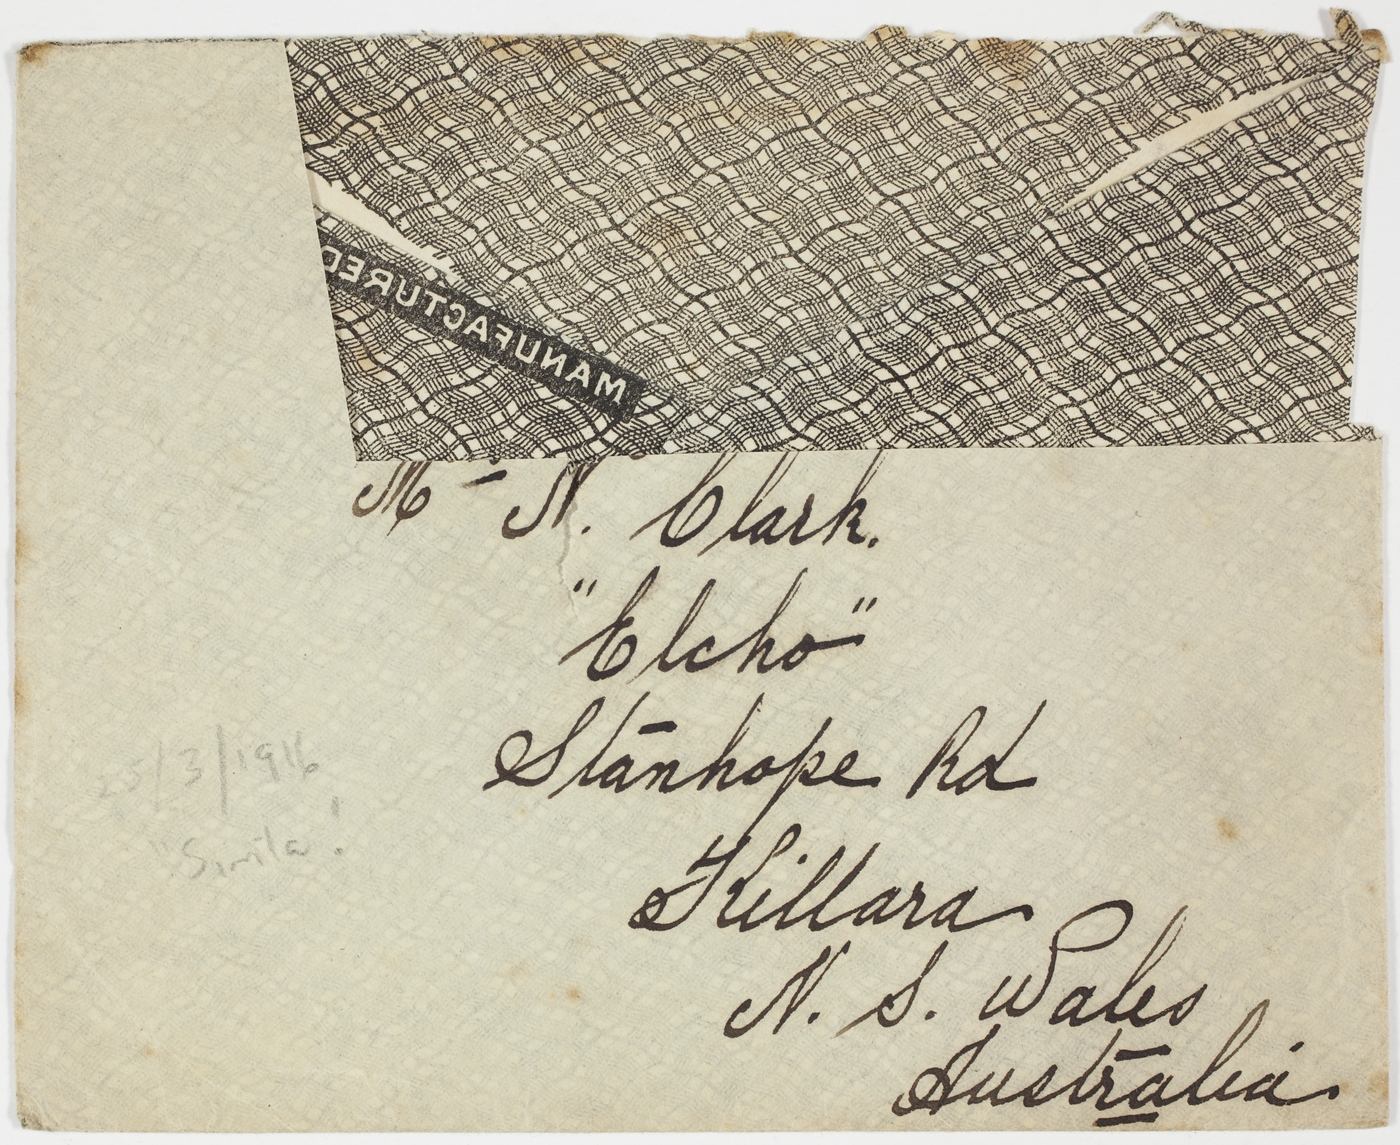 MANUFACTURED
Mr N. Clark.
"Elcho"
Stanhope Rd
Killara
N. S. Wales
Australia.
25/3/1916